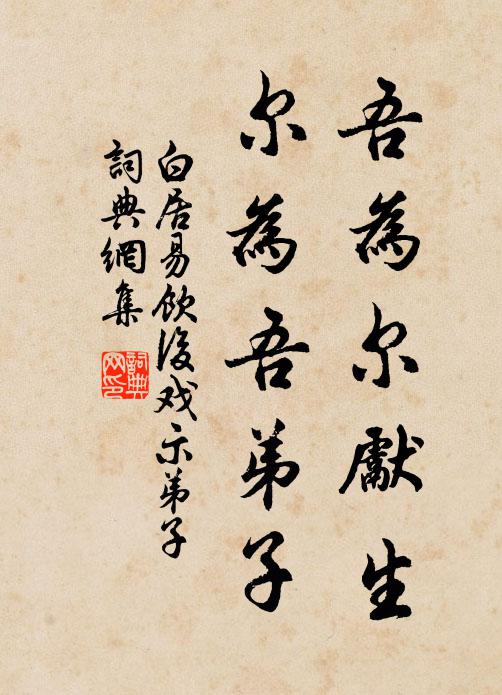 吾為尔獻生
尔為吾弟子
白居易飲後戏示弟子
詞典網集
詞典网印